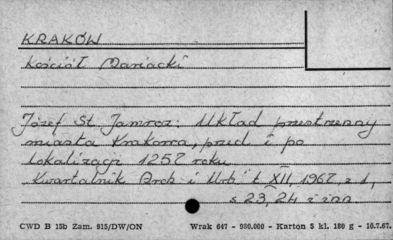 KRAKÓW
Kościół Mariacki
Józef St. Jamroz: Układ przestrzenny
miasta Krakowa, przed i po
lokalizacji 1257 roku
Kwartalnik Arch i Urb. t XII, 1967, z 1,
s 23, 24 i inn.
CWD B 15b Zam. 915/DW/ON Wrak 647 - 900.000 - Karton 5 kl. 180 g - 10.7.67.